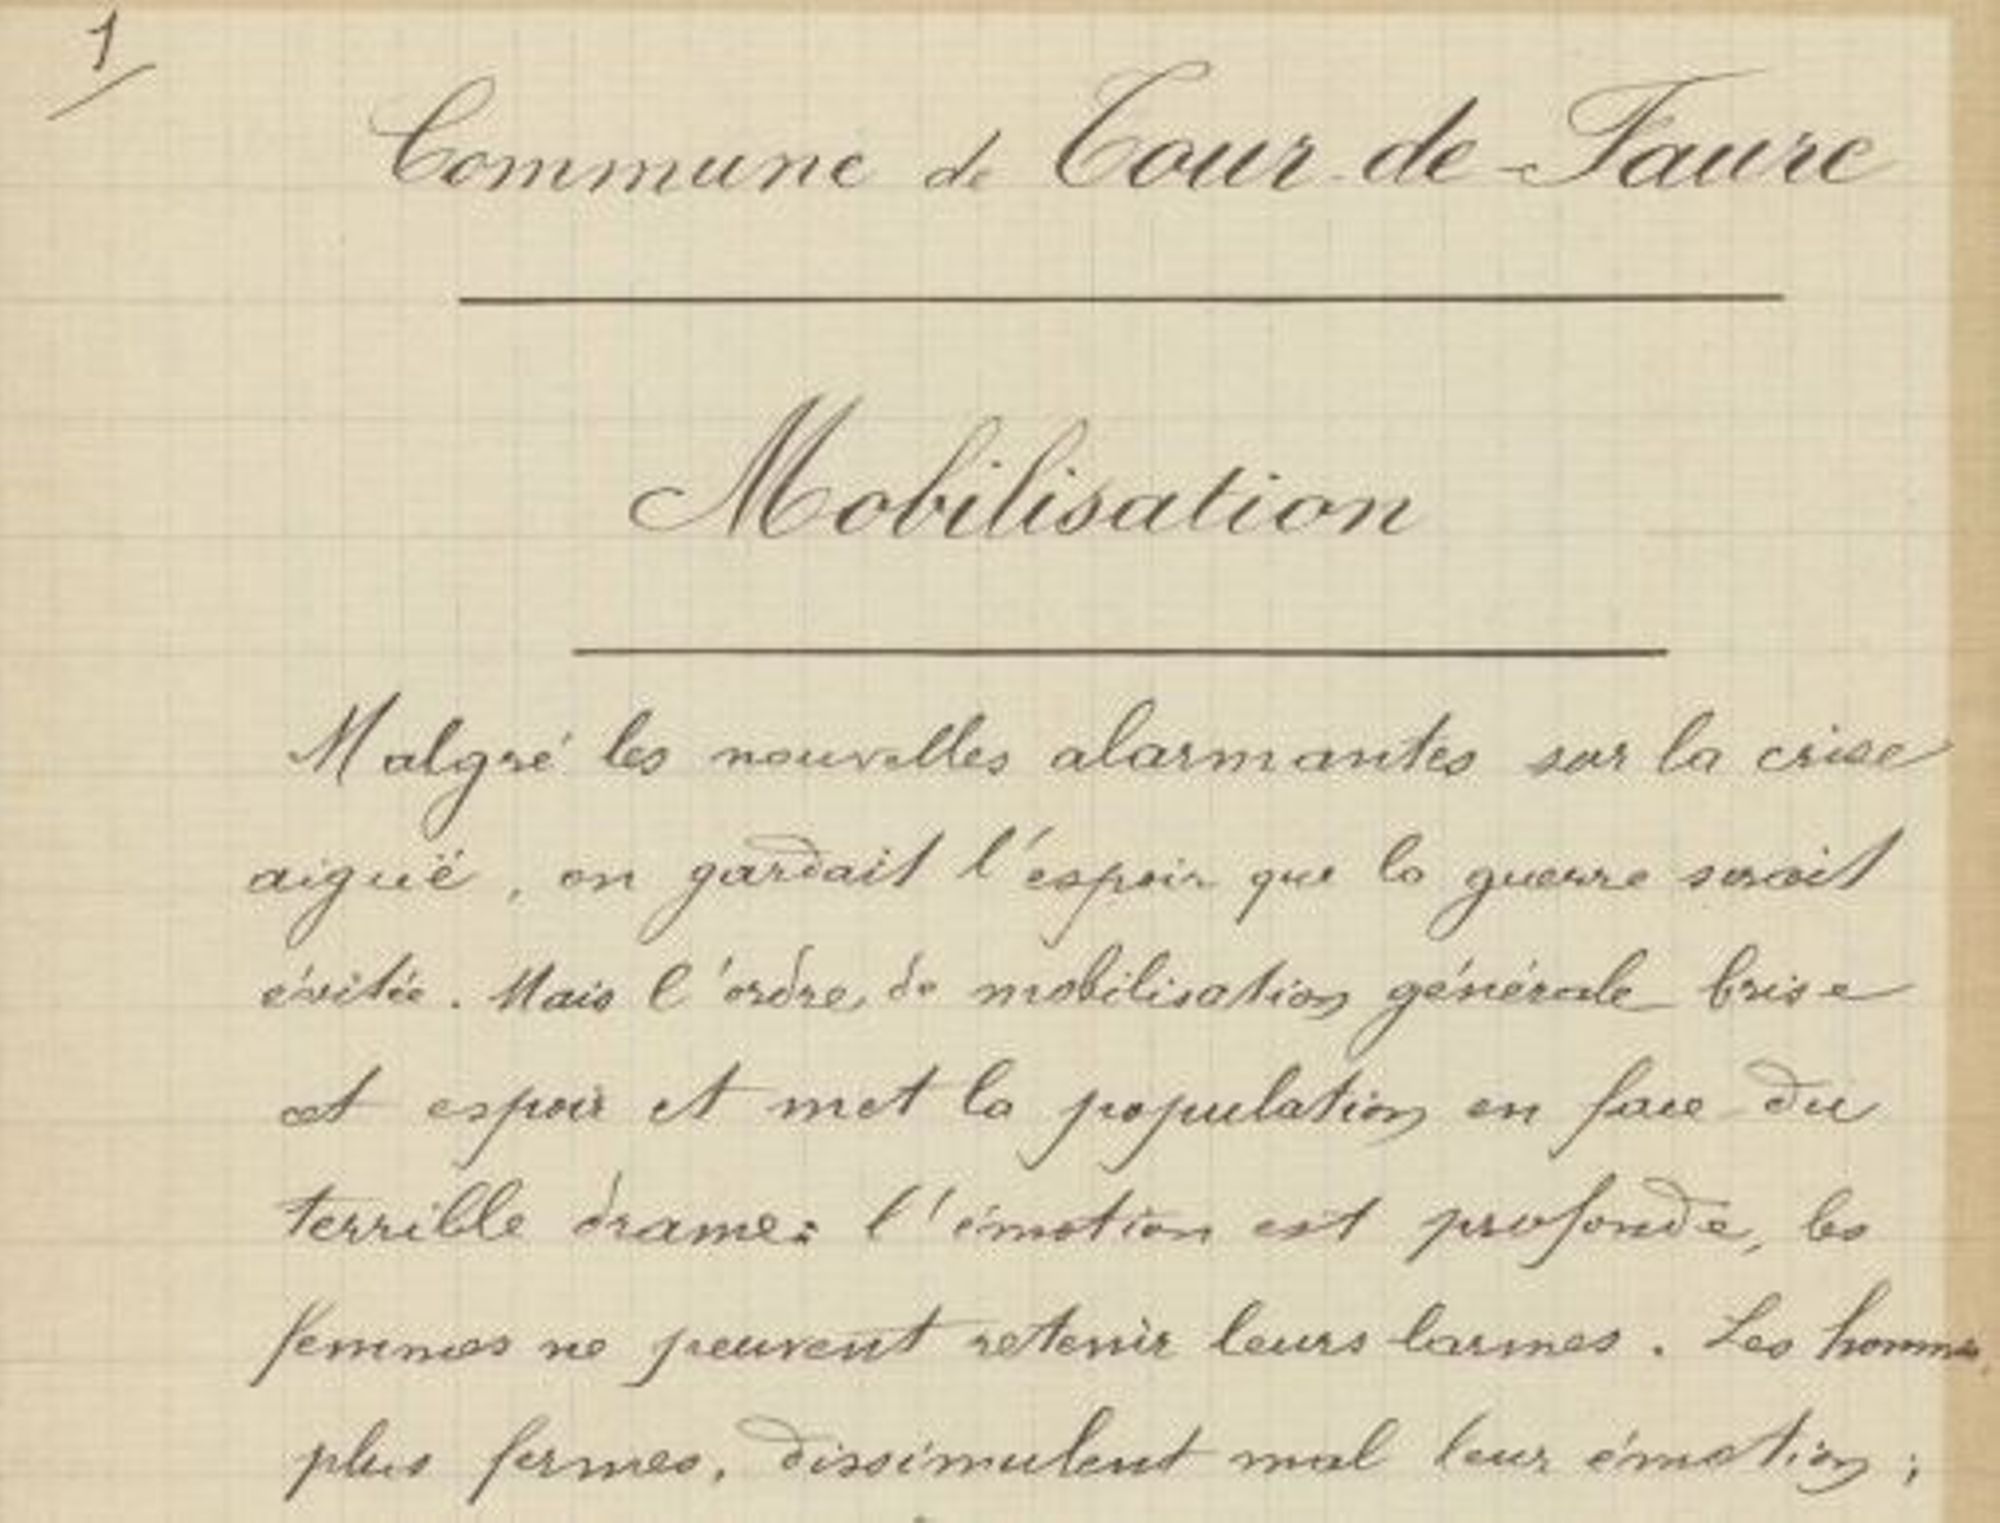 1
Commune de Tour-de-Faure
Mobilisation
Malgré les nouvelles alarmantes sur la crise
aiguë, on gardait l'espoir que la guerre serait
évitée. Mais l'ordre de mobilisation générale brise
cet espoir et met la population en face du
terrible drame: l'émotion est profonde, les
femmes ne peuvent retenir leurs larmes. Les hommes,
plus fermes, dissimulent mal leur émotion;